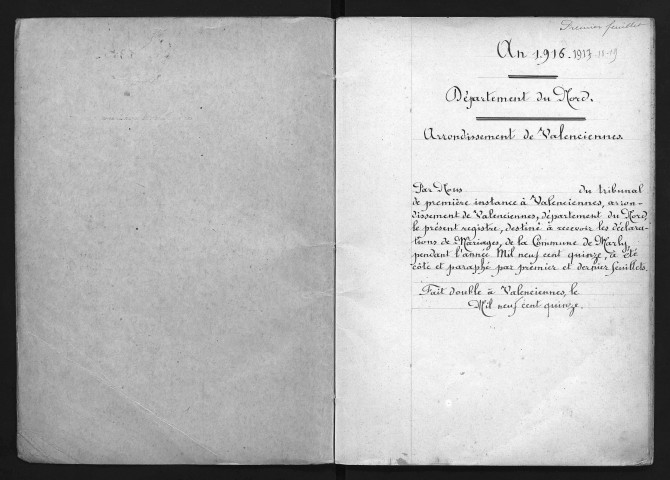 Premier feuillet
An 1916-1917-18-19
Département du Nord.
Arrondissement de Valenciennes.
Par Nous du tribunal
de première instance à Valenciennes, arron-
dissement de Valenciennes, département du Nord,
le présent registre, destiné à recevoir les déclara-
tions de Mariages, de la Commune de Marly,
pendant l'année Mil neuf cent quinze, a été
côté et paraphé par premier et dernier feuillets.
Fait double à Valenciennes, le
Mil neuf cent quinze.